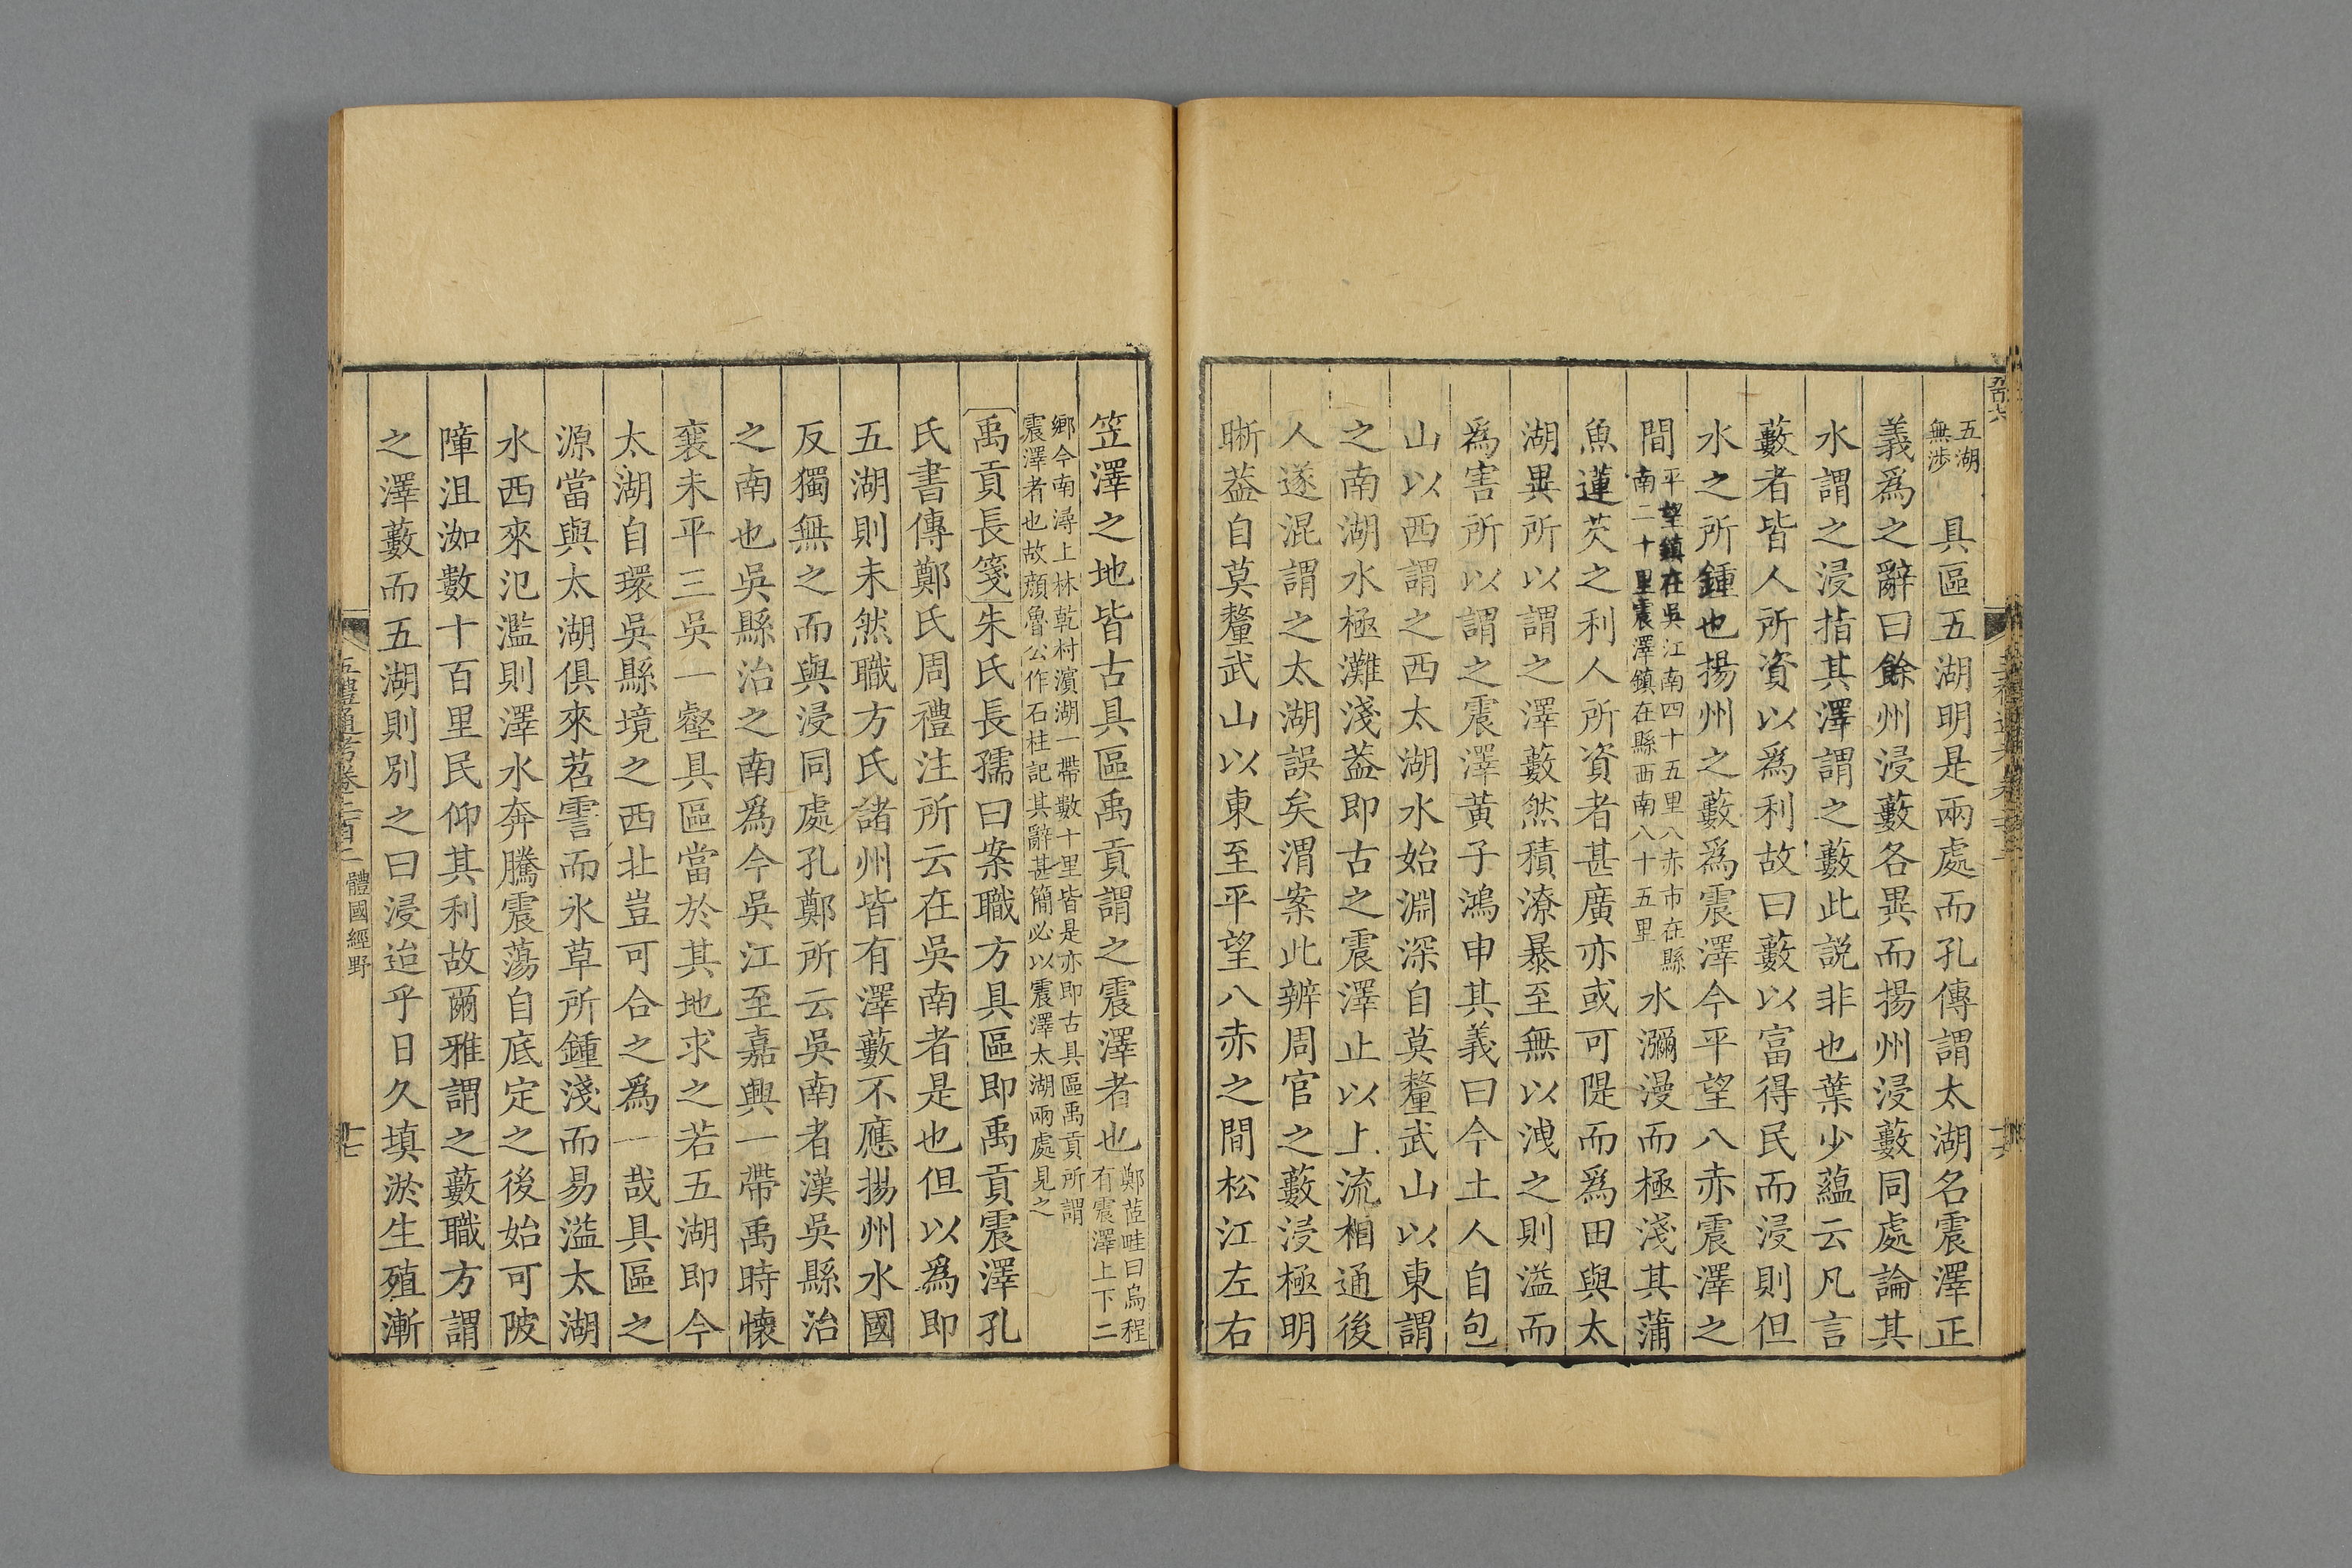 五湖無涉　具區五湖明是兩處而孔傳謂太湖名震澤正
義爲之辭曰餘州浸藪各異而揚州浸藪同處論其
水謂之浸指其澤謂之藪此說非也葉少蘊云凡言
藪者皆人所資以爲利故曰藪以富得民而浸則但
水之所鍾也揚州之藪爲震澤今平望八赤震澤之
間平望鎮在吳江南四十五里八赤市在縣南二十里震澤鎮在縣西南八十五里水瀰漫而極淺其蒲
魚蓮芡之利人所資者甚廣亦或可隄而爲田與太
湖異所以謂之澤藪然積潦暴至無以洩之則溢而
爲害所以謂之震澤黃子鴻申其義曰今土人自包
山以西謂之西太湖水始淵深自莫釐武山以東謂
之南湖水極灘淺葢即古之震澤止以上流相通後
人遂混謂之太湖誤矣渭案此辨周官之藪浸極明
晰葢自莫釐武山以東至平望八赤之間松江左右
笠澤之地皆古具區禹貢謂之震澤者也鄭芷畦曰烏程有震澤上下二
鄉今南潯上林乾村濱湖一帶數十里皆是亦即古具區禹貢所謂震澤者也故顏魯公作石柱記其辭甚簡必以震澤太湖兩處見之
禹貢長箋朱氏長孺曰案職方具區即禹貢震澤孔
氏書傳鄭氏周禮注所云在吳南者是也但以爲即
五湖則未然職方氏諸州皆有澤藪不應揚州水國
反獨無之而與浸同處孔鄭所云吳南者漢吳縣治
之南也吳縣治之南爲今吳江至嘉興一帶禹時懷
襄未平三吳一壑具區當於其地求之若五湖即今
太湖自環吳縣境之西北豈可合之爲一哉具區之
源當與太湖俱來苕霅而水草所鍾淺而易溢太湖
水西來氾濫則澤水奔騰震蕩自底定之後始可陂
障沮洳數十百里民仰其利故爾雅謂之藪職方謂
之澤藪而五湖則別之曰浸迨乎日久填淤生殖漸
五禮通考卷二百二　體國經野